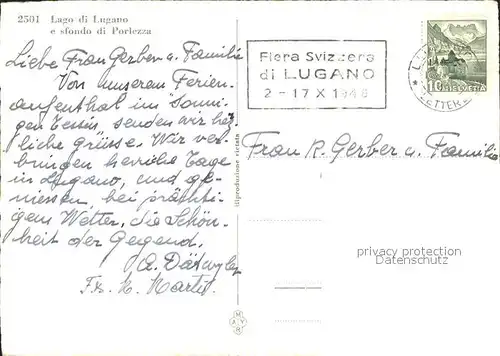 2501 Lago di Lugano
e sfondo di Porlezza
Liebe Frau Gerber u. Familie
Von unserem Ferien-
aufenthalt im sonni-
gen Tessin, senden wir herz-
liche Grüsse. Wir ver-
bringen herrliche Tage
in Lugano, und ge-
niessen, bei prächti-
gem Wetter, die Schön-
heit der Gegend.
A. Dätwyler
Fr. M. Marti
Fiera Svizzera
di LUGANO
2-17 X 1948
LETTERE
10 HELVETIA
Frau R. Gerber u. Familie
Riproduzione vietata
privacy protection
Datenschutz